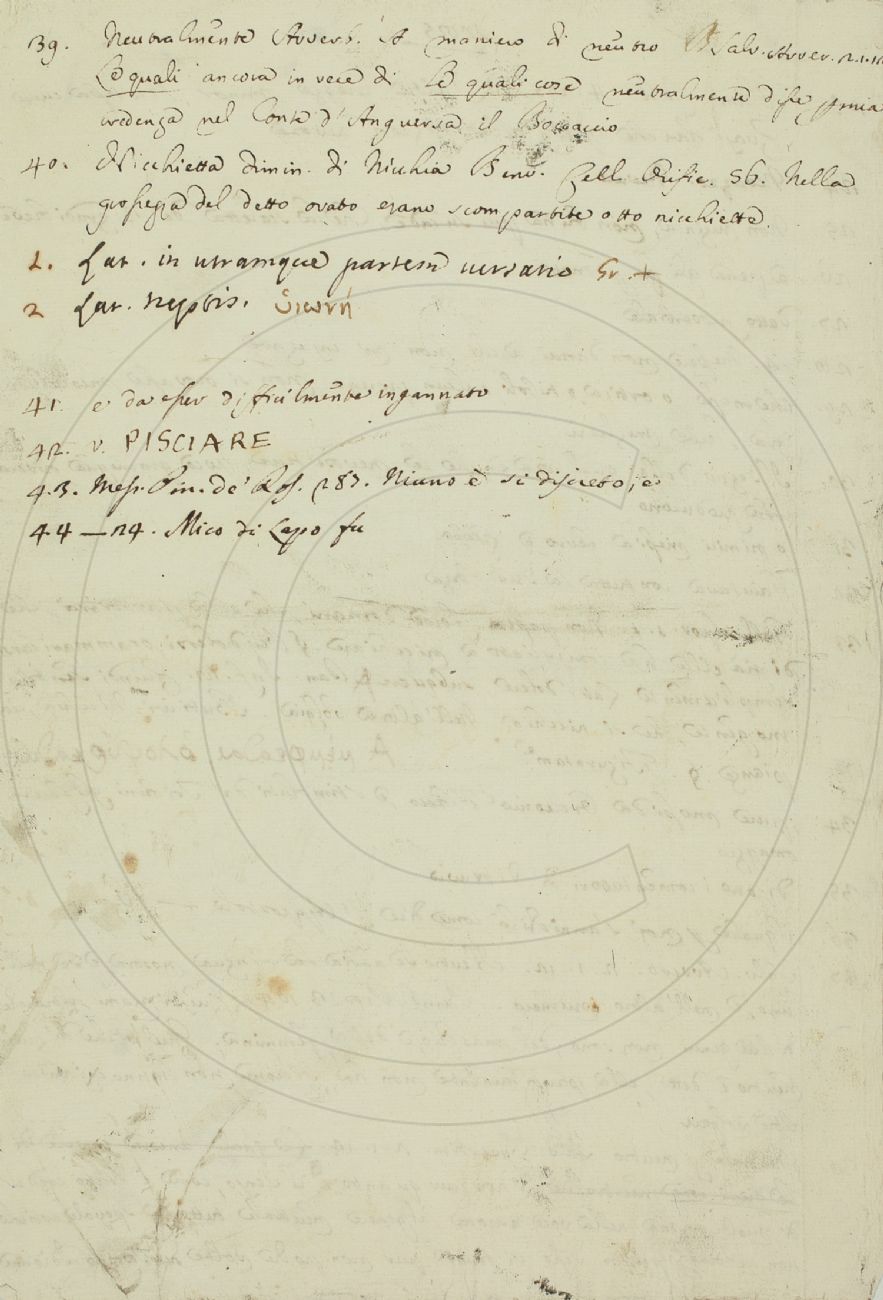 39. Neutralmente Avverb. A maniera di neutro Salv. Avver. 2.1.12
Le quali ancora in vece di Le quali cose neutralmente disse, p mia
credenza nel Conte d'Anguersa il Boccaccio
40. Nicchietta dimin. di Nicchia Benv. Cell. Orific. 56. Nella
grossezza del detto ovato erano scompartite otto nicchiette.
1. Lat. in utramque partem versatio Gr. +
2 Lat. neptis. ὑιωνή
41. e da esser difficilmente ingannato
42. v. PISCIARE
43. Mess. Cin. de' Ros. 287. Niuno è si discreto, e
44 — 24. Mico di Lapo fu